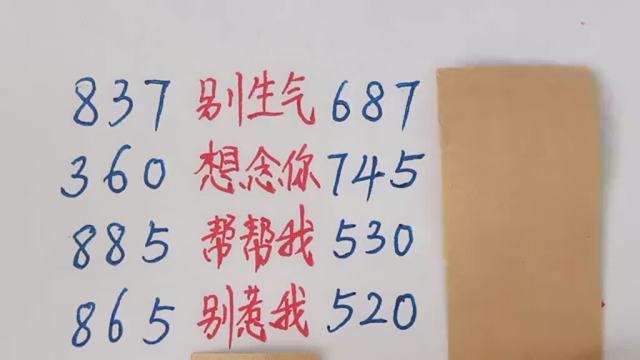 837 别生气 687
360 想念你 745
885 帮帮我 530
865 别惹我 520